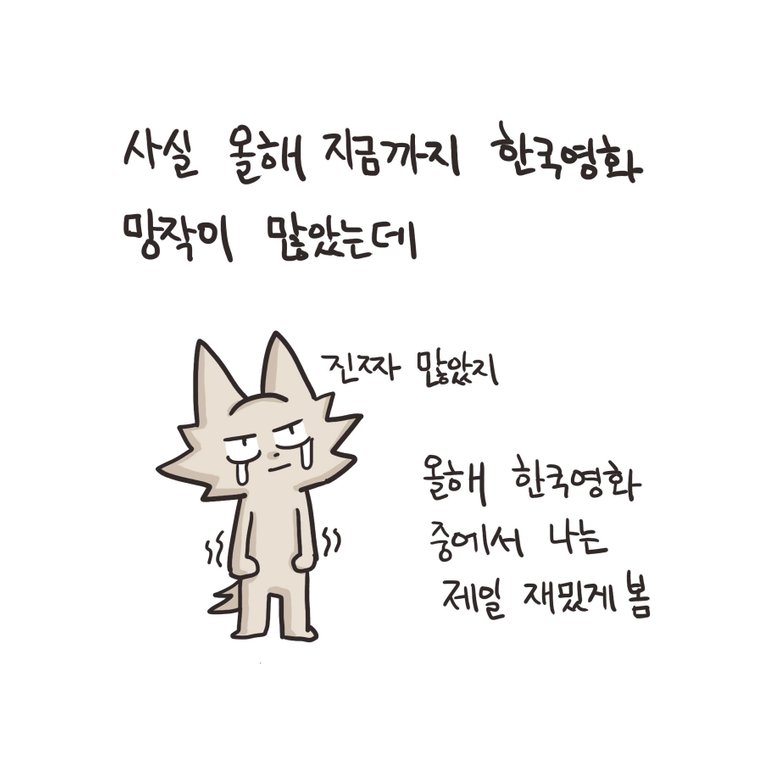 사실 올해 지금까지 한국영화
망작이 많았는데
진짜 많았지
올해 한국영화
중에서 나는
제일 재밌게 봄